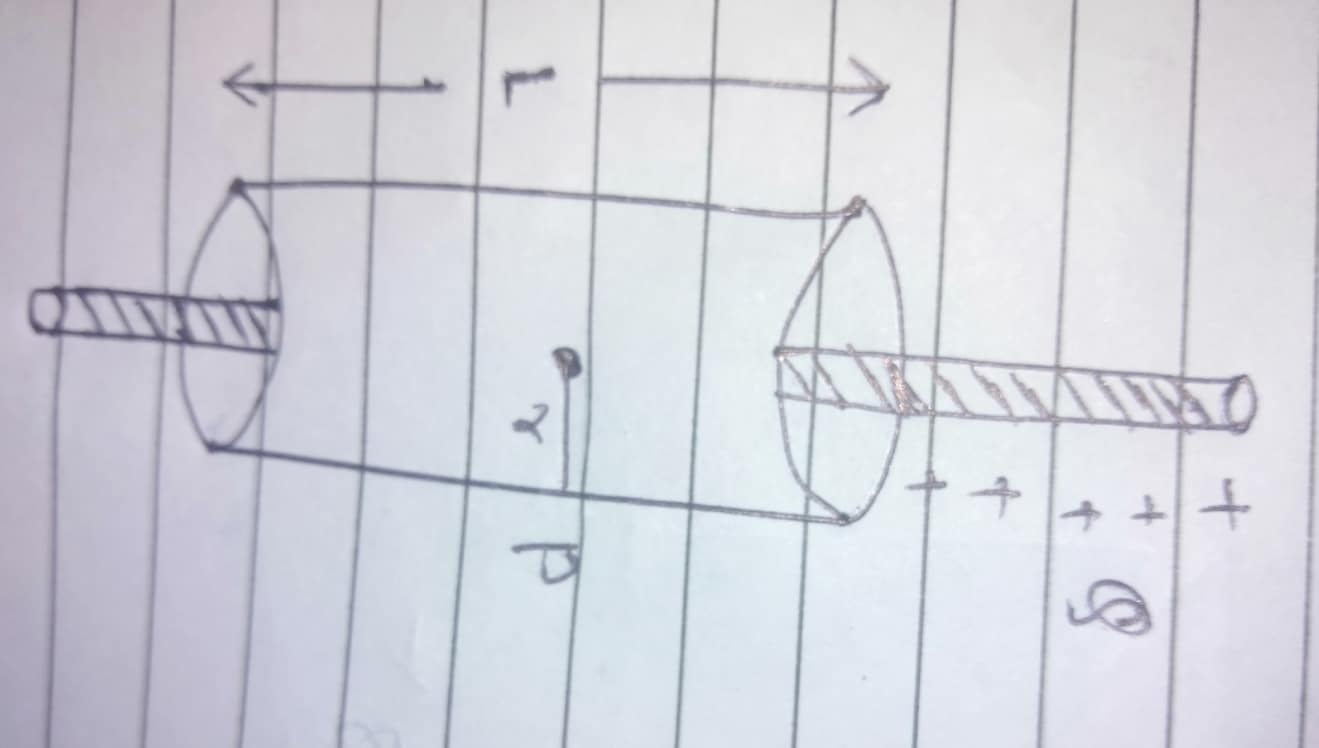 +
+
+ Q
+
+
L
r P